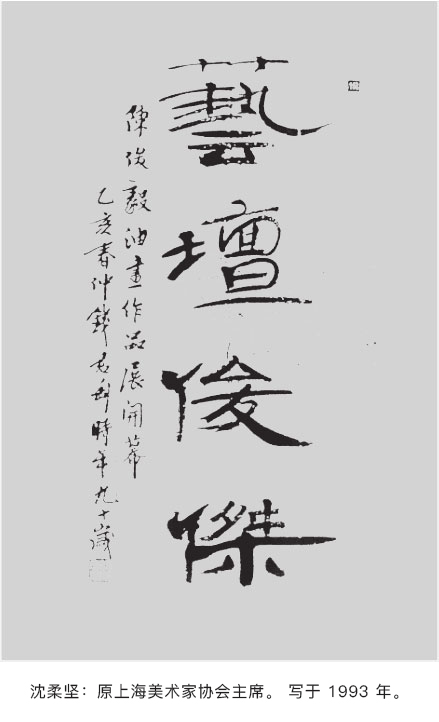 藝壇俊傑
陳俊毅油畫作品展開幕
乙亥春仲錢君匋時年九十歲
沈柔坚：原上海美术家协会主席。 写于 1993 年。